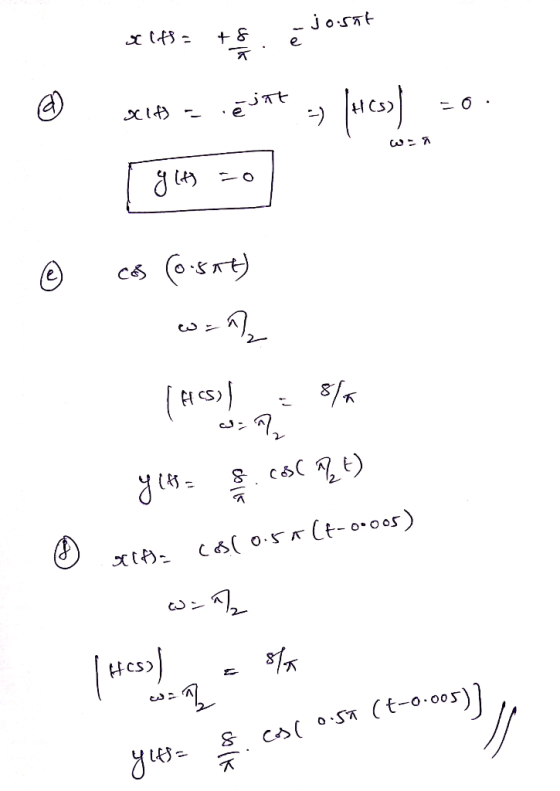 x(t) = +8/π . e^-j0.5πt
(d) x(t) = .e^-jπt ⇒ |H(s)| ω=π = 0.
y(t) = 0
(e) cos (0.5πt)
ω = π/2
|H(s)| ω=π/2 = 8/π
y(t) = 8/π . cos(π/2 t)
(f) x(t) = cos(0.5π(t-0.005)
ω = π/2
|H(s)| ω=π/2 = 8/π
y(t) = 8/π . cos(0.5π(t-0.005)] //